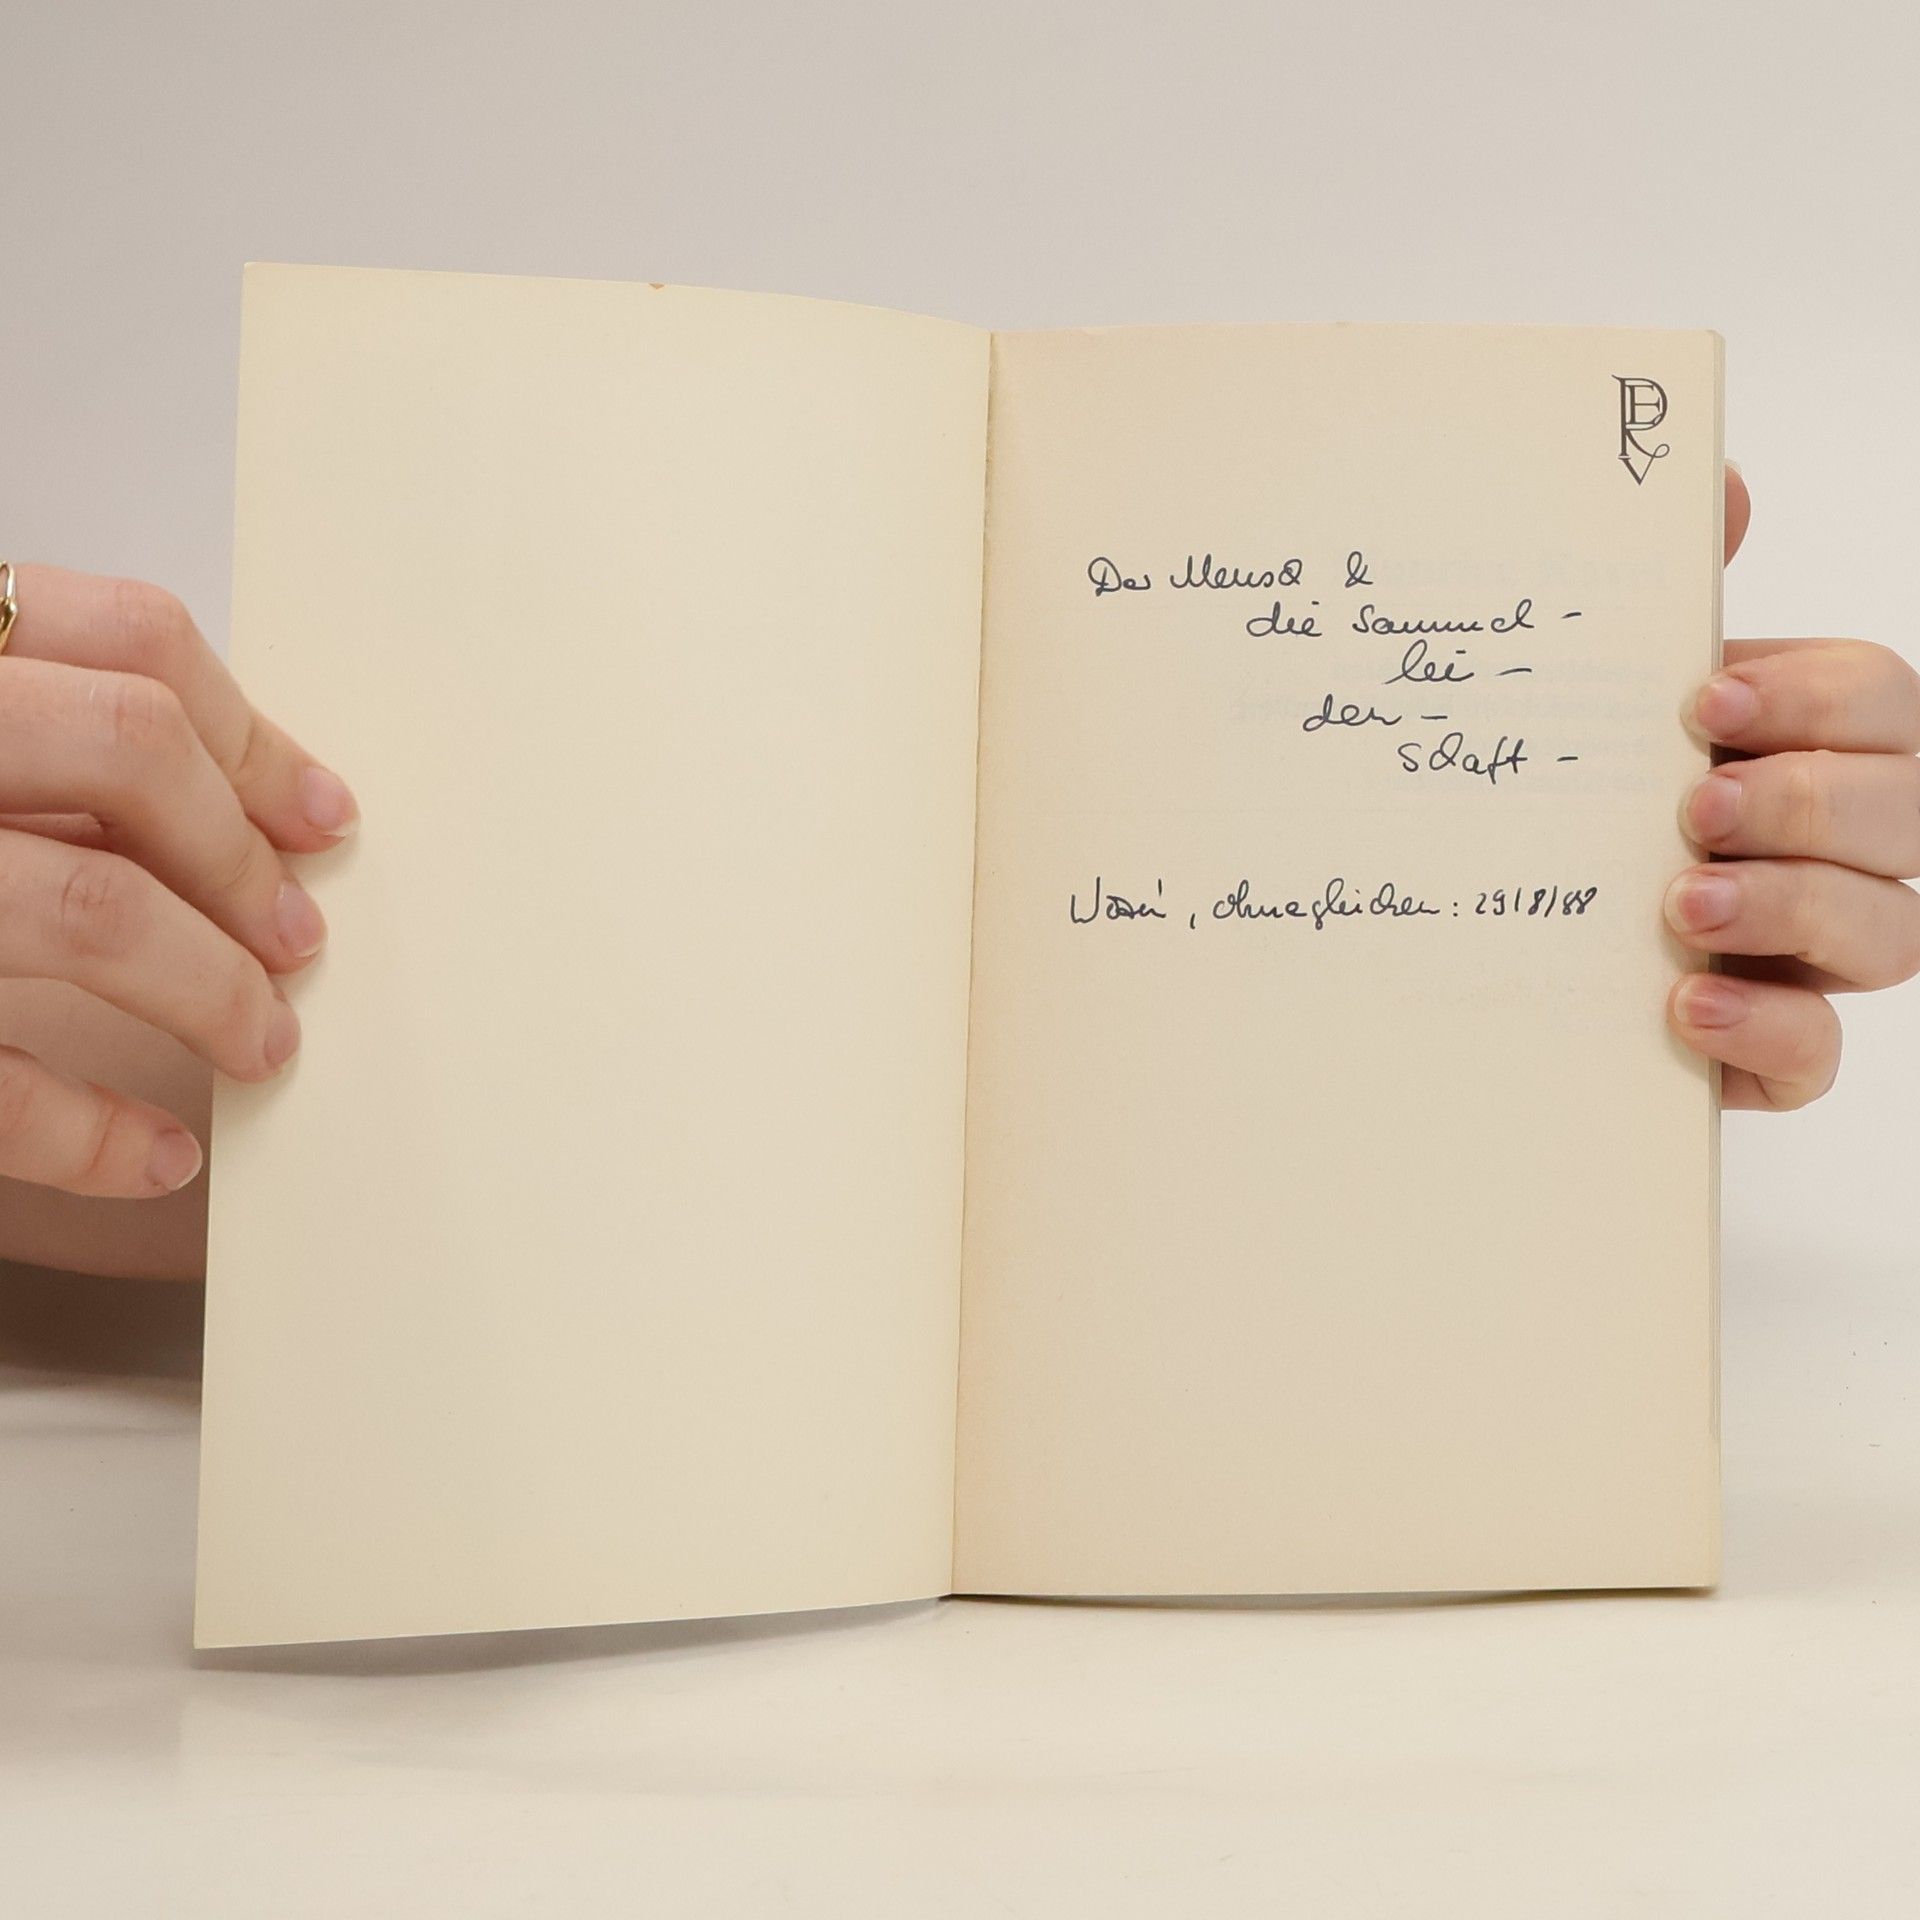 PERV
Der Mensch &
die Sammel -
lei -
den -
schaft -
, ohnegleichen : 29/8/88